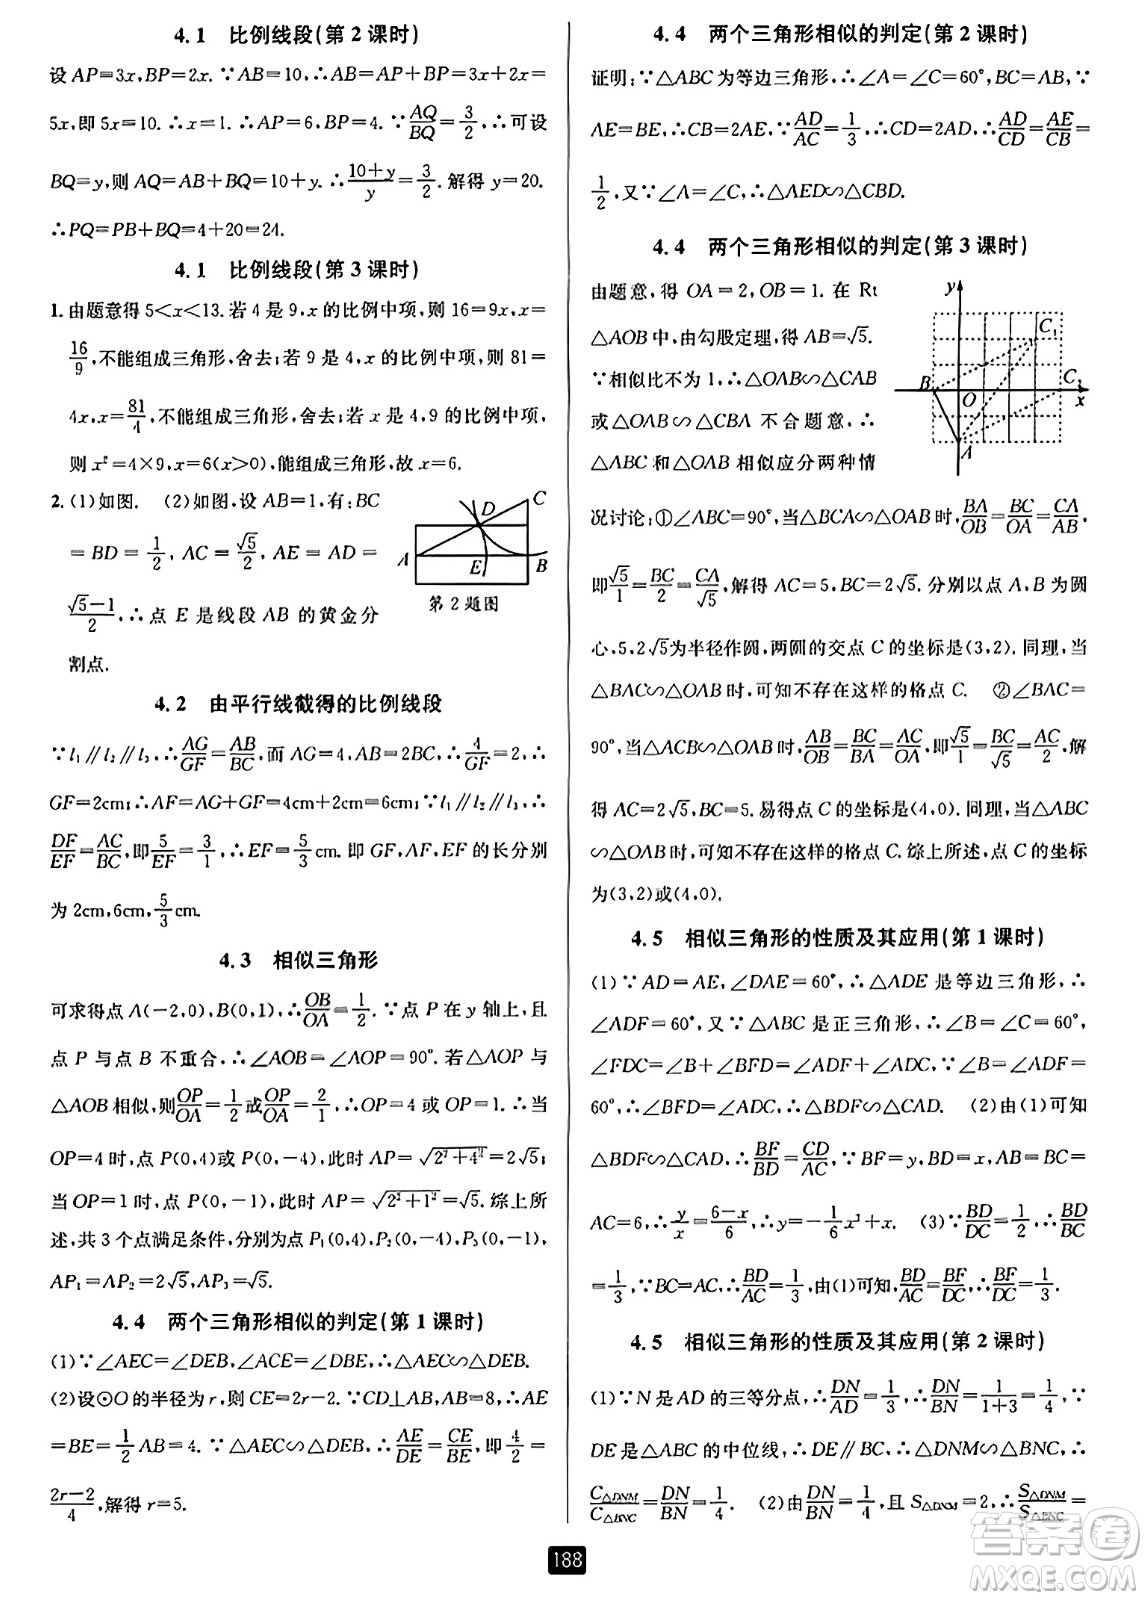 4.1 比例线段(第2课时)
设 AP=3x,BP=2x. ∵AB=10,∴AB=AP+BP=3x+2x=
5x,即 5x=10. ∴x=1. ∴AP=6,BP=4. ∵AQ/BQ=3/2,∴可设
BQ=y,则 AQ=AB+BQ=10+y. ∴(10+y)/y=3/2. 解得 y=20.
∴PQ=PB+BQ=4+20=24.
4.1 比例线段(第3课时)
1.由题意得5<x<13.若4是9,x的比例中项,则16=9x,x=
16/9,不能组成三角形,舍去;若9是4,x的比例中项,则81=
4x,x=81/4,不能组成三角形,舍去;若x是4,9的比例中项,
则 x²=4×9,x=6(x>0),能组成三角形,故 x=6.
2.(1)如图. (2)如图,设 AB=1,有:BC
=BD=1/2,AC=√5/2,AE=AD=
(√5-1)/2,∴点 E 是线段 AB 的黄金分
割点.
C
D
A
E
B
第2题图
4.2 由平行线截得的比例线段
∵l₁∥l₂∥l₃,∴AG/GF=AB/BC,而 AG=4,AB=2BC,∴4/GF=2,∴
GF=2cm;∴AF=AG+GF=4cm+2cm=6cm;∵l₁∥l₂∥l₃,∴
DF/EF=AC/BC,即5/EF=3/1,∴EF=5/3cm. 即 GF,AF,EF 的长分别
为 2cm,6cm,5/3cm.
4.3 相似三角形
可求得点 A(-2,0),B(0,1),∴OB/OA=1/2. ∵点 P 在 y 轴上,且
点 P 与点 B 不重合,∴∠AOB=∠AOP=90°. 若△AOP 与
△AOB 相似,则OP/OA=1/2或OP/OA=2/1,∴OP=4 或 OP=1. ∴当
OP=4 时,点 P(0,4)或 P(0,-4),此时 AP=√(2²+4²)=2√5;
当 OP=1 时,点 P(0,-1),此时 AP=√(2²+1²)=√5. 综上所
述,共 3 个点满足条件,分别为点 P₁(0,4),P₂(0,-4),P₃(0,-1),
AP₁=AP₂=2√5,AP₃=√5.
4.4 两个三角形相似的判定(第1课时)
(1)∵∠AEC=∠DEB,∠ACE=∠DBE,∴△AEC∽△DEB.
(2)设⊙O的半径为r,则CE=2r-2. ∵CD⊥AB,AB=8,∴AE
=BE=1/2AB=4. ∵△AEC∽△DEB,∴AE/DE=CE/BE,即4/2=
(2r-2)/4,解得 r=5.
4.4 两个三角形相似的判定(第2课时)
证明:∵△ABC为等边三角形,∴∠A=∠C=60°,BC=AB,∵
AE=BE,∴CB=2AE,∵AD/AC=1/3,∴CD=2AD,∴AD/CD=AE/CB=
1/2,又∵∠A=∠C,∴△AED∽△CBD.
4.4 两个三角形相似的判定(第3课时)
由题意,得 OA=2,OB=1. 在 Rt
△AOB 中,由勾股定理,得 AB=√5.
∵相似比不为 1,∴△OAB∽△CAB
或△OAB∽△CBA 不合题意,∴
△ABC 和△OAB 相似应分两种情
况讨论:①∠ABC=90°,当△BCA∽△OAB时,BA/OB=BC/OA=CA/AB,
即√5/1=BC/2=CA/√5,解得 AC=5,BC=2√5. 分别以点 A,B 为圆
心,5,2√5为半径作圆,两圆的交点 C 的坐标是(3,2).同理,当
△BAC∽△OAB 时,可知不存在这样的格点 C. ②∠BAC=
90°,当△ACB∽△OAB时,AB/OB=BC/AB=AC/OA,即√5/1=BC/√5=AC/2,解
得 AC=2√5,BC=5. 易得点C的坐标是(4,0).同理,当△ABC
∽△OAB 时,可知不存在这样的格点 C. 综上所述,点 C 的坐标
为(3,2)或(4,0).
y
C₁
B
O
C₂
x
A
4.5 相似三角形的性质及其应用(第1课时)
(1)∵AD=AE,∠DAE=60°,∴△ADE是等边三角形,∴
∠ADF=60°,又∵△ABC 是正三角形,∴∠B=∠C=60°,
∠FDC=∠B+∠BFD=∠ADF+∠ADC,∵∠B=∠ADF=
60°,∴∠BFD=∠ADC,∴△BDF∽△CAD. (2)由(1)可知
△BDF∽△CAD,∴BF/BD=CD/AC,∵BF=y,BD=x,AB=BC=
AC=6,∴y/x=(6-x)/6,∴y=-1/6x²+x. (3)∵BD/DC=1/2,∴BD/BC
=1/3,∵BC=AC,∴BD/AC=1/3,由(1)可知,BD/AC=BF/DC,∴BF/DC=1/3.
4.5 相似三角形的性质及其应用(第2课时)
(1)∵N是AD的三等分点,∴DN/AD=1/3,∴DN/BN=1/(1+3)=1/4,∵
DE是△ABC的中位线,∴DE∥BC,∴△DNM∽△BNC,∴
C△DNM/C△BNC=DN/BN=1/4. (2)由DN/BN=1/4,且S△DNM=2,∴S△DNM/S△BNC=
188
答案圈
MXQE.COM